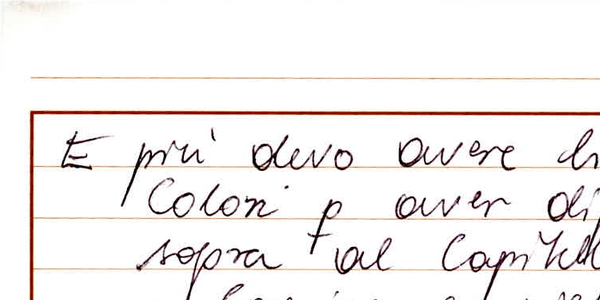 E più devo avere
Colori p aver di
sopra al Capitell